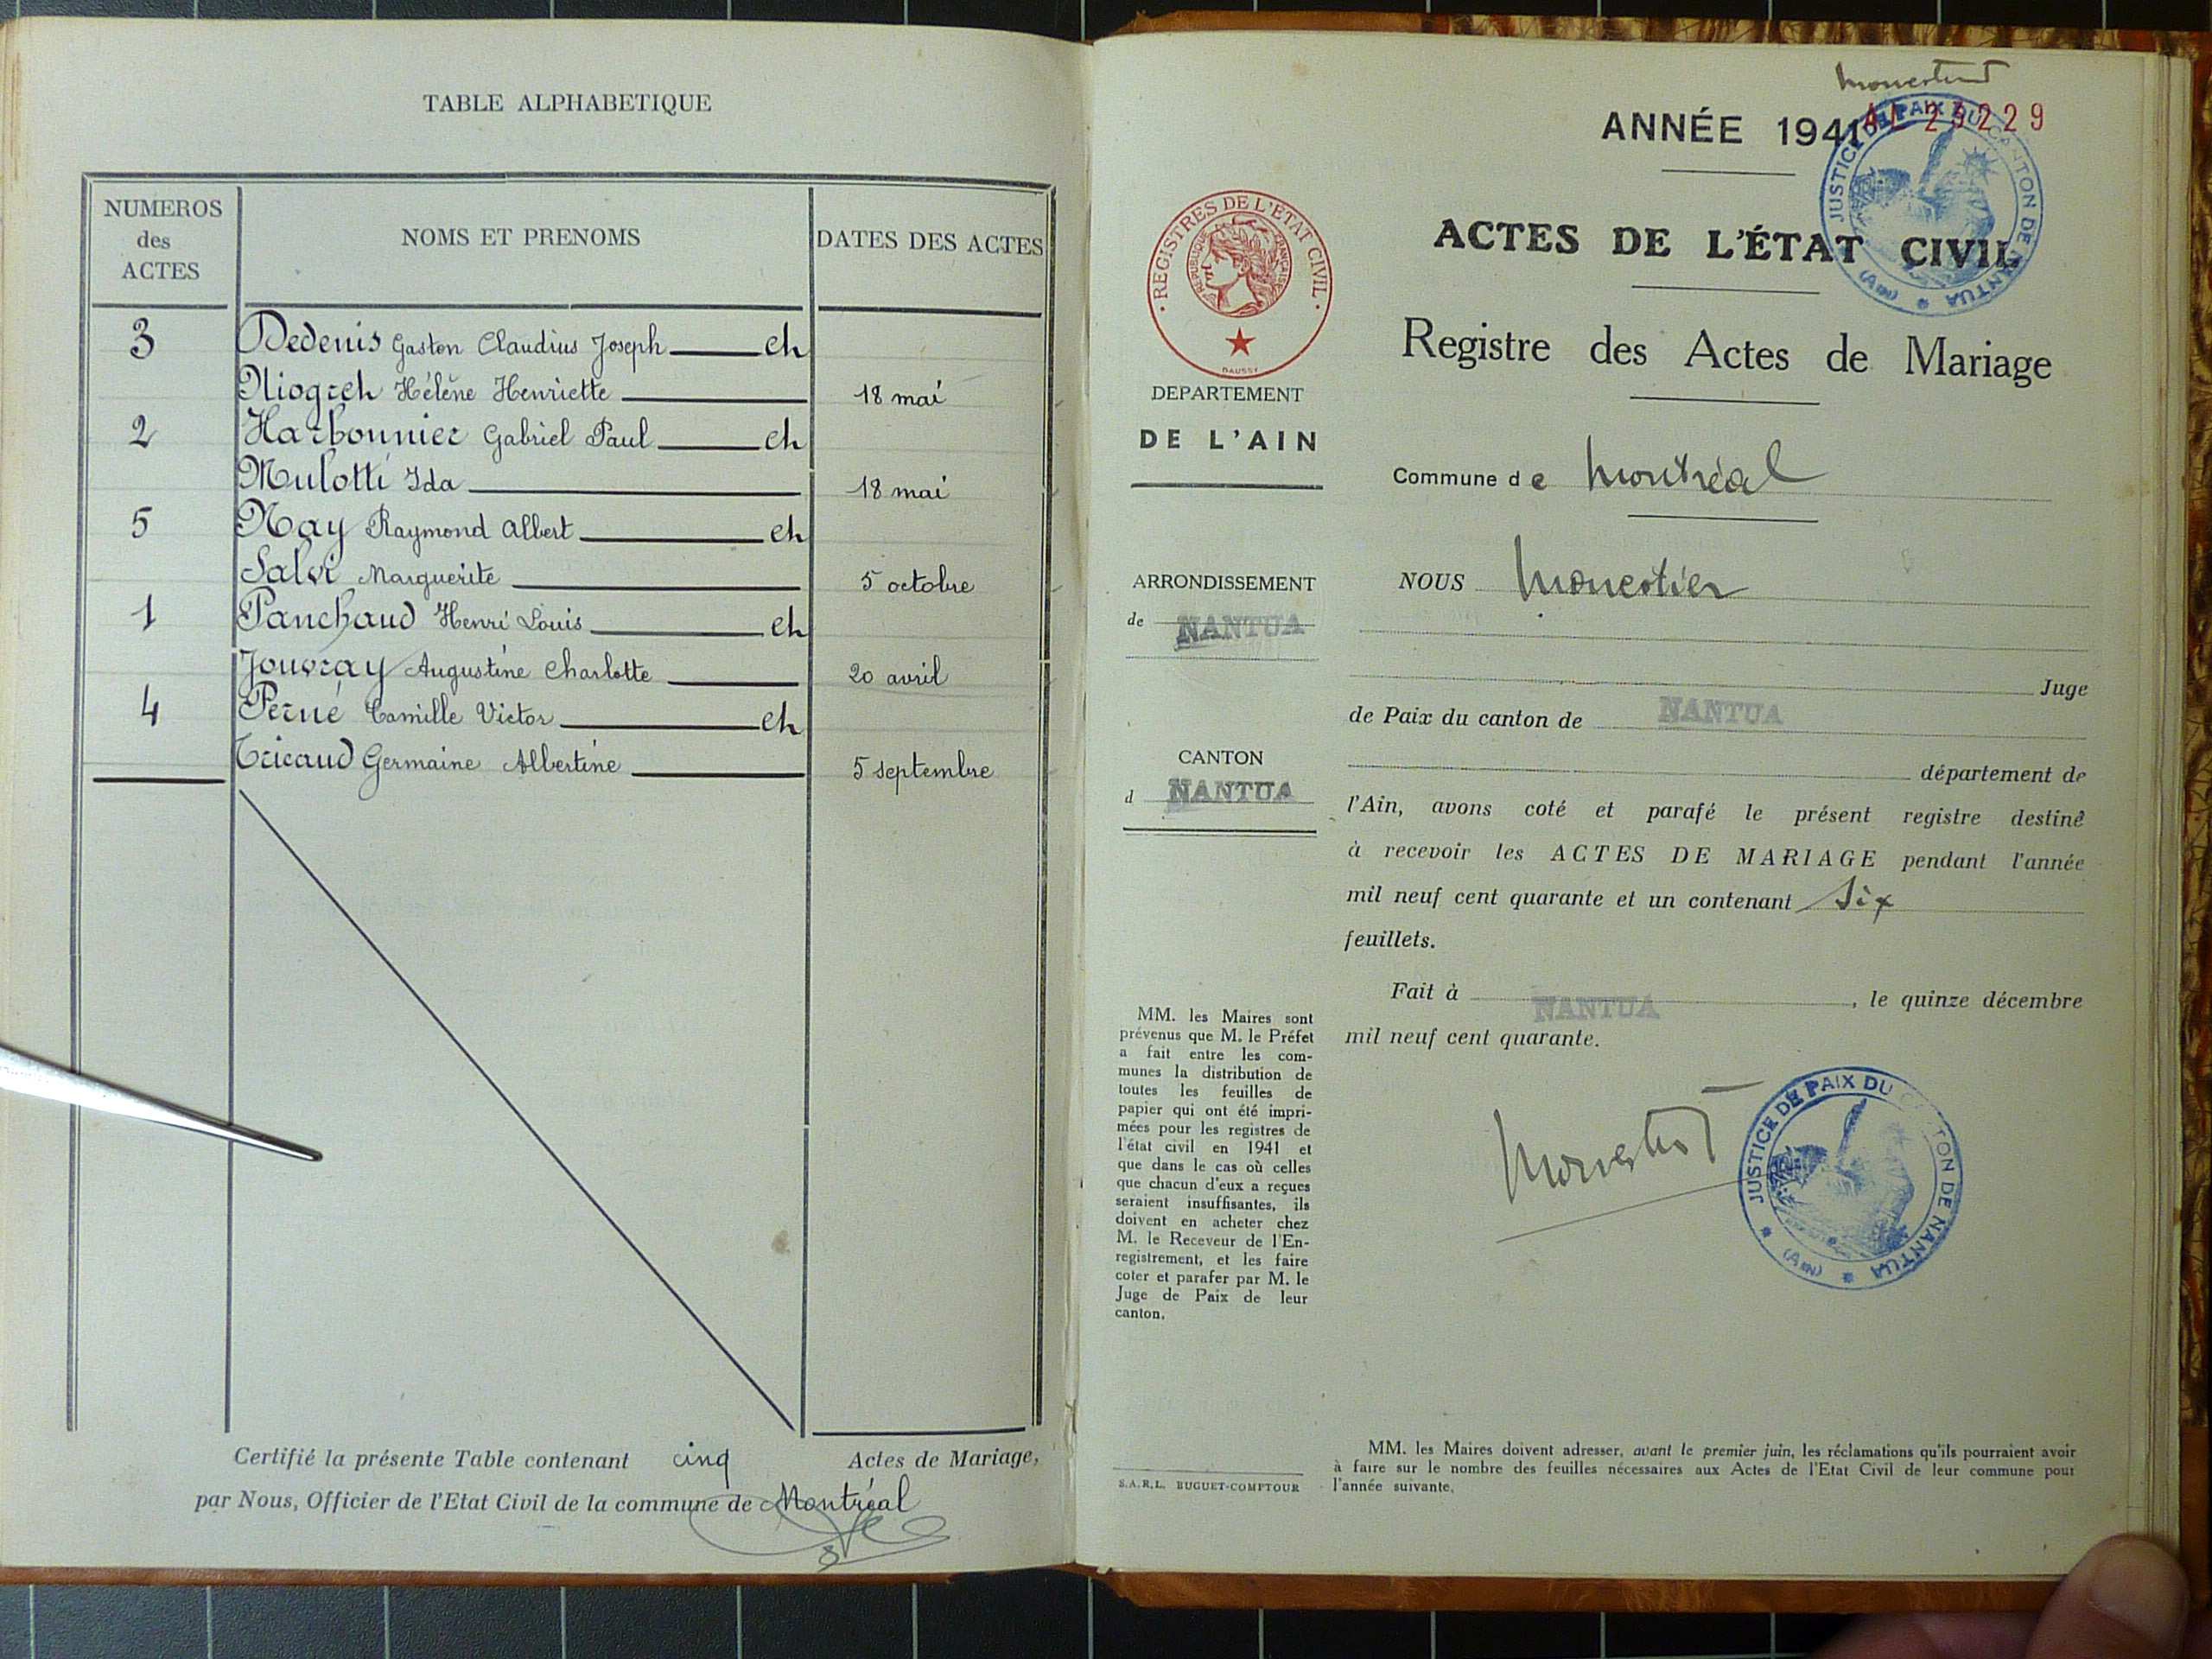 TABLE ALPHABETIQUE
NUMEROS
des
ACTES
NOMS ET PRENOMS
DATES DES ACTES
3 Dedenis Gaston Claudius Joseph et
Niogret Hélène Henriette 18 mai
2 Harbonnier Gabriel Paul et
Mulotti Ida 18 mai
5 Nay Raymond Albert et
Salvi Marguerite 5 octobre
1 Panchaud Henri Louis et
Jouvray Augustine Charlotte 20 avril
4 Perné Camille Victor et
Tricaud Germaine Albertine 5 septembre
Certifié la présente Table contenant cinq Actes de Mariage,
par Nous, Officier de l'Etat Civil de la commune de Montréal
ANNÉE 1941
229
JUSTICE DE PAIX DU CANTON DE NANTUA
(Ain)
REGISTRES DE L'ETAT CIVIL
REPUBLIQUE FRANÇAISE
DAUSSY
ACTES DE L'ÉTAT CIVIL
Registre des Actes de Mariage
DEPARTEMENT
DE L'AIN
Commune de Montréal
ARRONDISSEMENT
de NANTUA
CANTON
d NANTUA
NOUS Monestier
Juge
de Paix du canton de NANTUA
département de
l'Ain, avons coté et parafé le présent registre destiné
à recevoir les ACTES DE MARIAGE pendant l'année
mil neuf cent quarante et un contenant six
feuillets.
Fait à NANTUA, le quinze décembre
mil neuf cent quarante.
MM. les Maires sont
prévenus que M. le Préfet
a fait entre les com-
munes la distribution de
toutes les feuilles de
papier qui ont été impri-
mées pour les registres de
l'état civil en 1941 et
que dans le cas où celles
que chacun d'eux a reçues
seraient insuffisantes, ils
doivent en acheter chez
M. le Receveur de l'En-
registrement, et les faire
coter et parafer par M. le
Juge de Paix de leur
canton.
JUSTICE DE PAIX DU CANTON DE NANTUA
(Ain)
S.A.R.L. BUGUET-COMPTOUR
MM. les Maires doivent adresser, avant le premier juin, les réclamations qu'ils pourraient avoir
à faire sur le nombre des feuilles nécessaires aux Actes de l'Etat Civil de leur commune pour
l'année suivante.